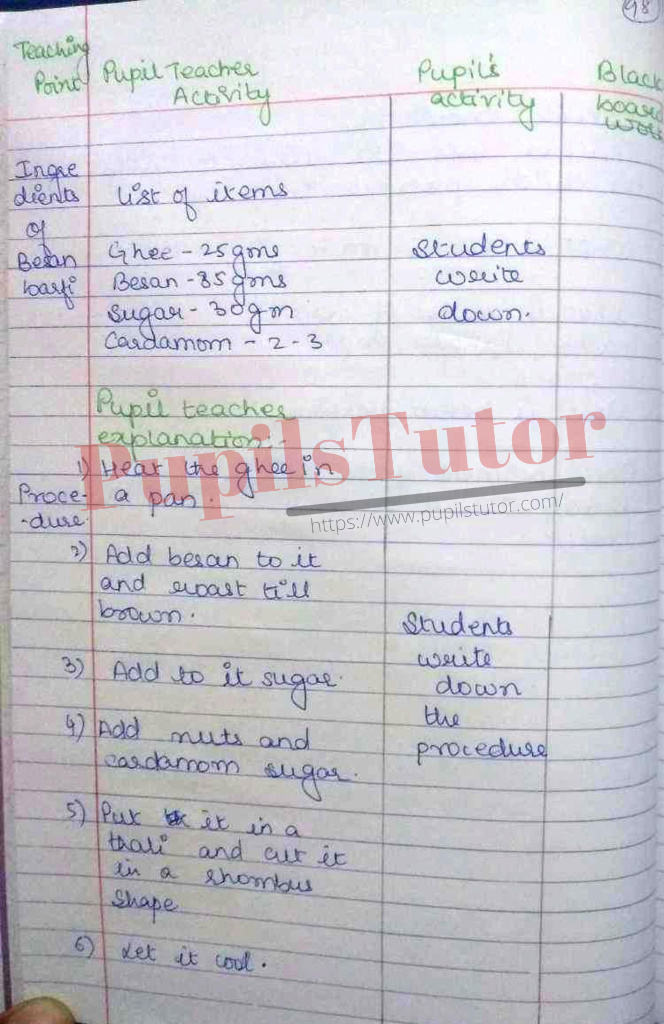 98
Teaching Point
Pupil Teacher Activity
Pupil's activity
Black board work
Ingre
dients
of
Besan
barfi
List of items
Ghee - 25gms
Besan - 85gms
Sugar - 30gm
Cardamom - 2-3
Students
write
down.
Pupil teacher
explanation:-
1) Heat the ghee in
a pan.
Proce-
-dure
PupilsTutor
https://www.pupilstutor.com/
2) Add besan to it
and roast till
brown.
3) Add to it sugar.
4) Add nuts and
cardamom sugar.
Students
write
down
the
procedure
5) Put it in a
thali and cut it
in a rhombus
shape
6) Let it cool.